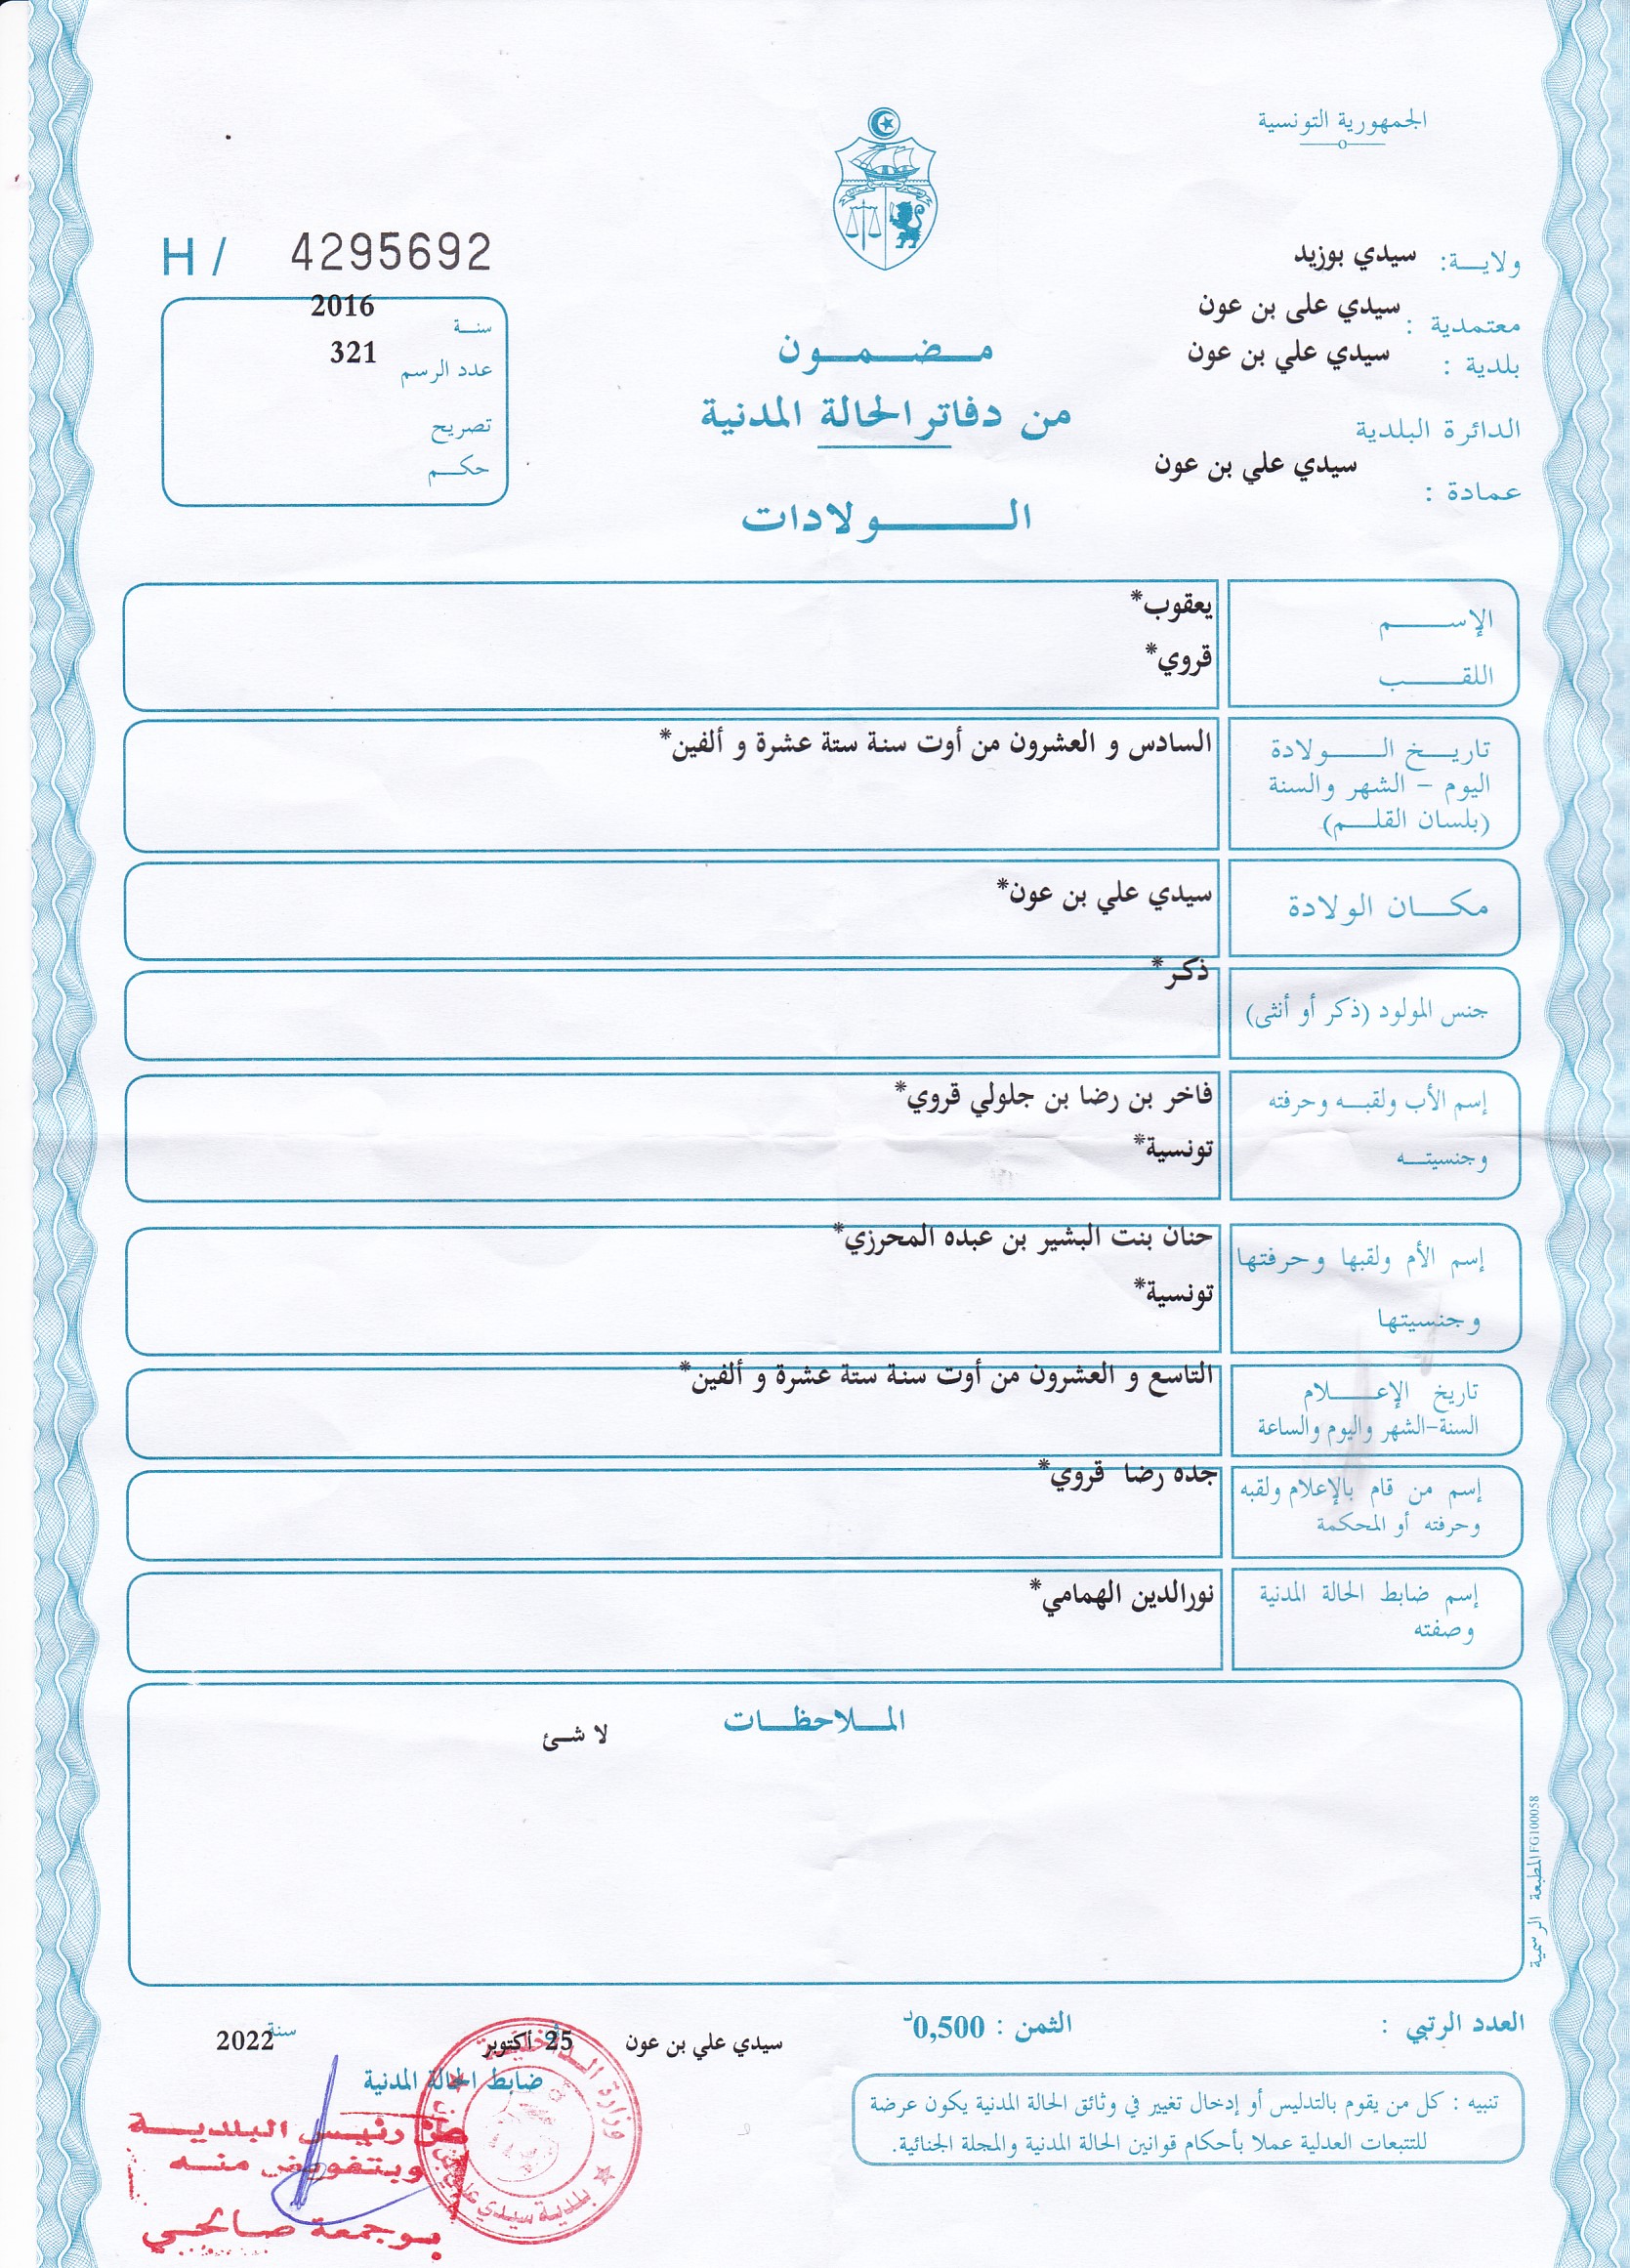 الجمهورية التونسية
ولايــة: سيدي بوزيد
معتمدية : سيدي على بن عون
بلدية : سيدي علي بن عون
الدائرة البلدية
سيدي علي بن عون
عمادة :
H / 4295692
2016
سنــة
321
عدد الرسم
تصريح
حكــم
مـضـمـون
من دفاتر الحالة المدنية
الـولادات
الإســـم
يعقوب*
اللقـــب
قروي*
تاريــخ الــولادة
اليوم – الشهر والسنة
(بلسان القلــم)
السادس و العشرون من أوت سنة ستة عشرة و ألفين*
مكــان الولادة
سيدي علي بن عون*
جنس المولود (ذكر أو أنثى)
ذكر*
إسم الأب ولقبــه وحرفته
وجنسيتــه
فاخر بن رضا بن جلولي قروي*
تونسية*
إسم الأم ولقبها وحرفتها
وجنسيتها
حنان بنت البشير بن عبده المحرزي*
تونسية*
تاريخ الإعــلام
السنة-الشهر واليوم والساعة
التاسع و العشرون من أوت سنة ستة عشرة و ألفين*
إسم من قام بالإعلام ولقبه
وحرفته أو المحكمة
جده رضا قروي*
إسم ضابط الحالة المدنية
وصفته
نورالدين الهمامي*
المــلاحظــات
لا شئ
المطبعة الرسمية FG100058
العدد الرتبي :
الثمن : 0,500د
سيدي علي بن عون
25 أكتوبر
سنة 2022
ضابط الحالة المدنية
تنبيه : كل من يقوم بالتدليس أو إدخال تغيير في وثائق الحالة المدنية يكون عرضة
للتتبعات العدلية عملا بأحكام قوانين الحالة المدنية والمجلة الجنائية.
عن رئيس البلديــة
وبتفويض منــه
بوجمعة صالحي
وزارة الداخلية
بلدية سيدي علي بن